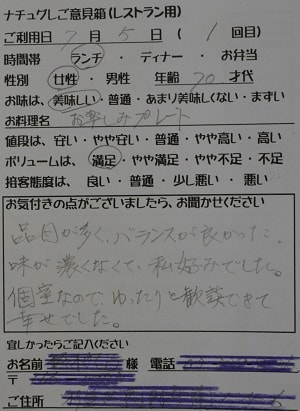 ナチュグしご意見箱(レストラン用)
ご利用日 7 月 5 日 ( 1 回目)
時間帯 ランチ ・ ディナー ・ お弁当
性別 女性 ・ 男性 年齢 70 才代
お味は、美味しい・普通・あまり美味しくない・まずい
お料理名 お楽しみプレート
値段は、安い・やや安い・普通・やや高い・高い
ボリュームは、満足・やや満足・やや不足・不足
接客態度は、良い・普通・少し悪い・悪い
お気付きの点がございましたら、お聞かせください
品目が多く、バランスが良かった。
味が濃くなくて、私好みでした。
個室なので、ゆったりと歓談できて
幸せでした。
宜しかったらご記入ください
お名前 様 電話
〒
ご住所